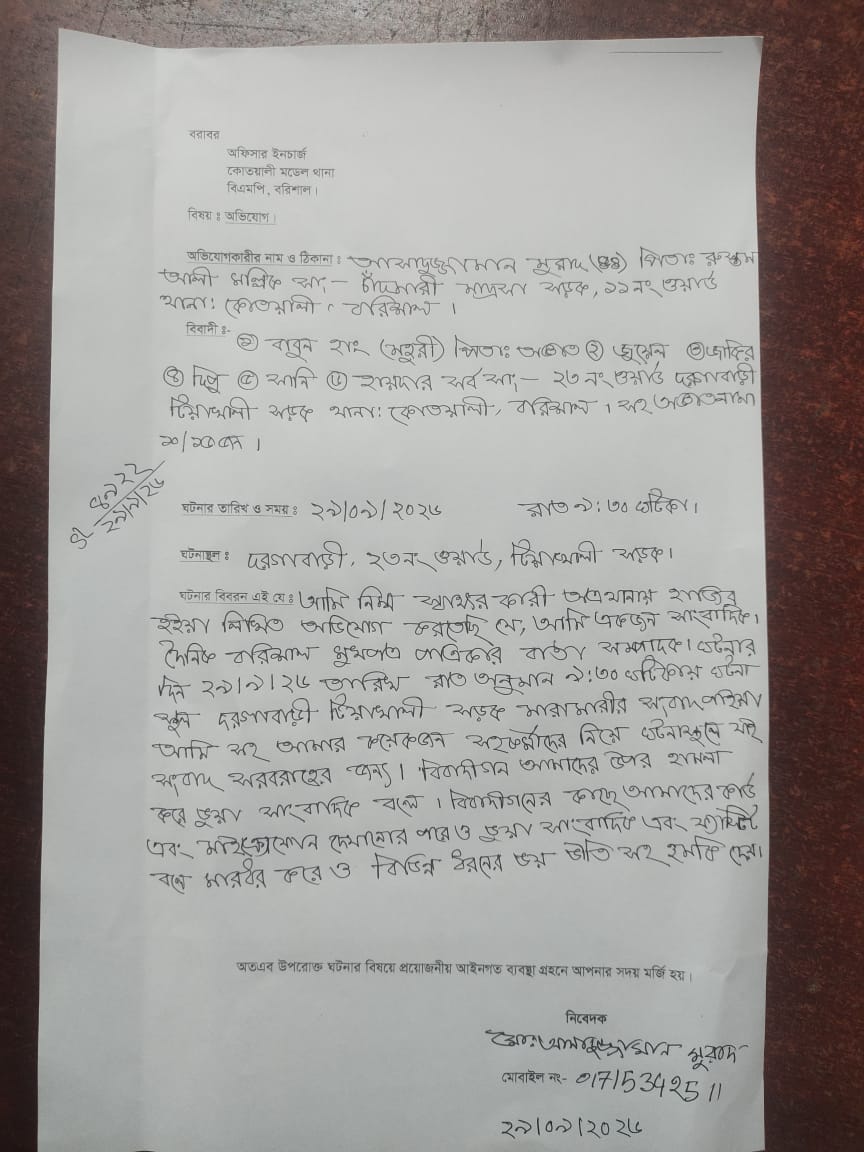 বরাবর
অফিসার ইনচার্জ
কোতয়ালী মডেল থানা
বিএমপি, বরিশাল।
বিষয় ঃ অভিযোগ।
অভিযোগকারীর নাম ও ঠিকানা : আসাদুজ্জামান মুরাদ (৪৪) পিতাঃ রুস্তম
আলী মল্লিক সাং- চাঁদমারী মাদ্রসা সড়ক, ১১নং ওয়ার্ড
থানা: কোতয়ালী, বরিশাল।
বিবাদী ঃ-
① বাবুল হাং (মহুরী) পিতাঃ অজ্ঞাত ② জুয়েল ③ জাকির
④ দিপু ⑤ সানি ⑥ হায়দার সর্ব সাং- ২৩ নং ওয়ার্ড দরগাবাড়ী
টিয়াখালী সড়ক থানা: কোতয়ালী, বরিশাল। সহ অজ্ঞাতনামা
১০/১৫জন।
২৯/৯/২৫
ঘটনার তারিখ ও সময় ঃ ২৯/০৯/২০২৫ রাত ৯:৩০ ঘটিকা।
ঘটনাস্থল ঃ দরগাবাড়ী, ২৩নং ওয়ার্ড, টিয়াখালী সড়ক।
ঘটনার বিবরন এই যে ঃ আমি নিম্ন স্বাক্ষর কারী অত্রথানায় হাজির
হইয়া লিখিত অভিযোগ করতেছি যে, আমি একজন সাংবাদিক।
দৈনিক বরিশাল মুখপত্র পত্রিকার বার্তা সম্পাদক। ঘটনার
দিন ২৯/৯/২৫ তারিখ রাত অনুমান ৯:৩০ ঘটিকায় ঘটনা
স্থল দরগাবাড়ী টিয়াখালী সড়ক মারামারীর সংবাদ পাইয়া
আমি সহ আমার কয়েকজন সহকর্মীদের নিয়ে ঘটনাস্থলে যাই
সংবাদ সরবরাহের জন্য। বিবাদীগন আমাদের উপর হামলা
করে ভুয়া সাংবাদিক বলে। বিবাদীগনের কাছে আমাদের কার্ড
এবং মাইক্রোফোন দেখানোর পরেও ভুয়া সাংবাদিক এবং
বলে মারধর করে ও বিভিন্ন ধরনের ভয় ভীতি সহ হুমকি দেয়।
অতএব উপরোক্ত ঘটনার বিষয়ে প্রয়োজনীয় আইনগত ব্যবস্থা গ্রহনে আপনার সদয় মর্জি হয়।
নিবেদক
মোঃ আসাদুজ্জামান মুরাদ
মোবাইল নং- 01715342511
২৯/০৯/২০২৫